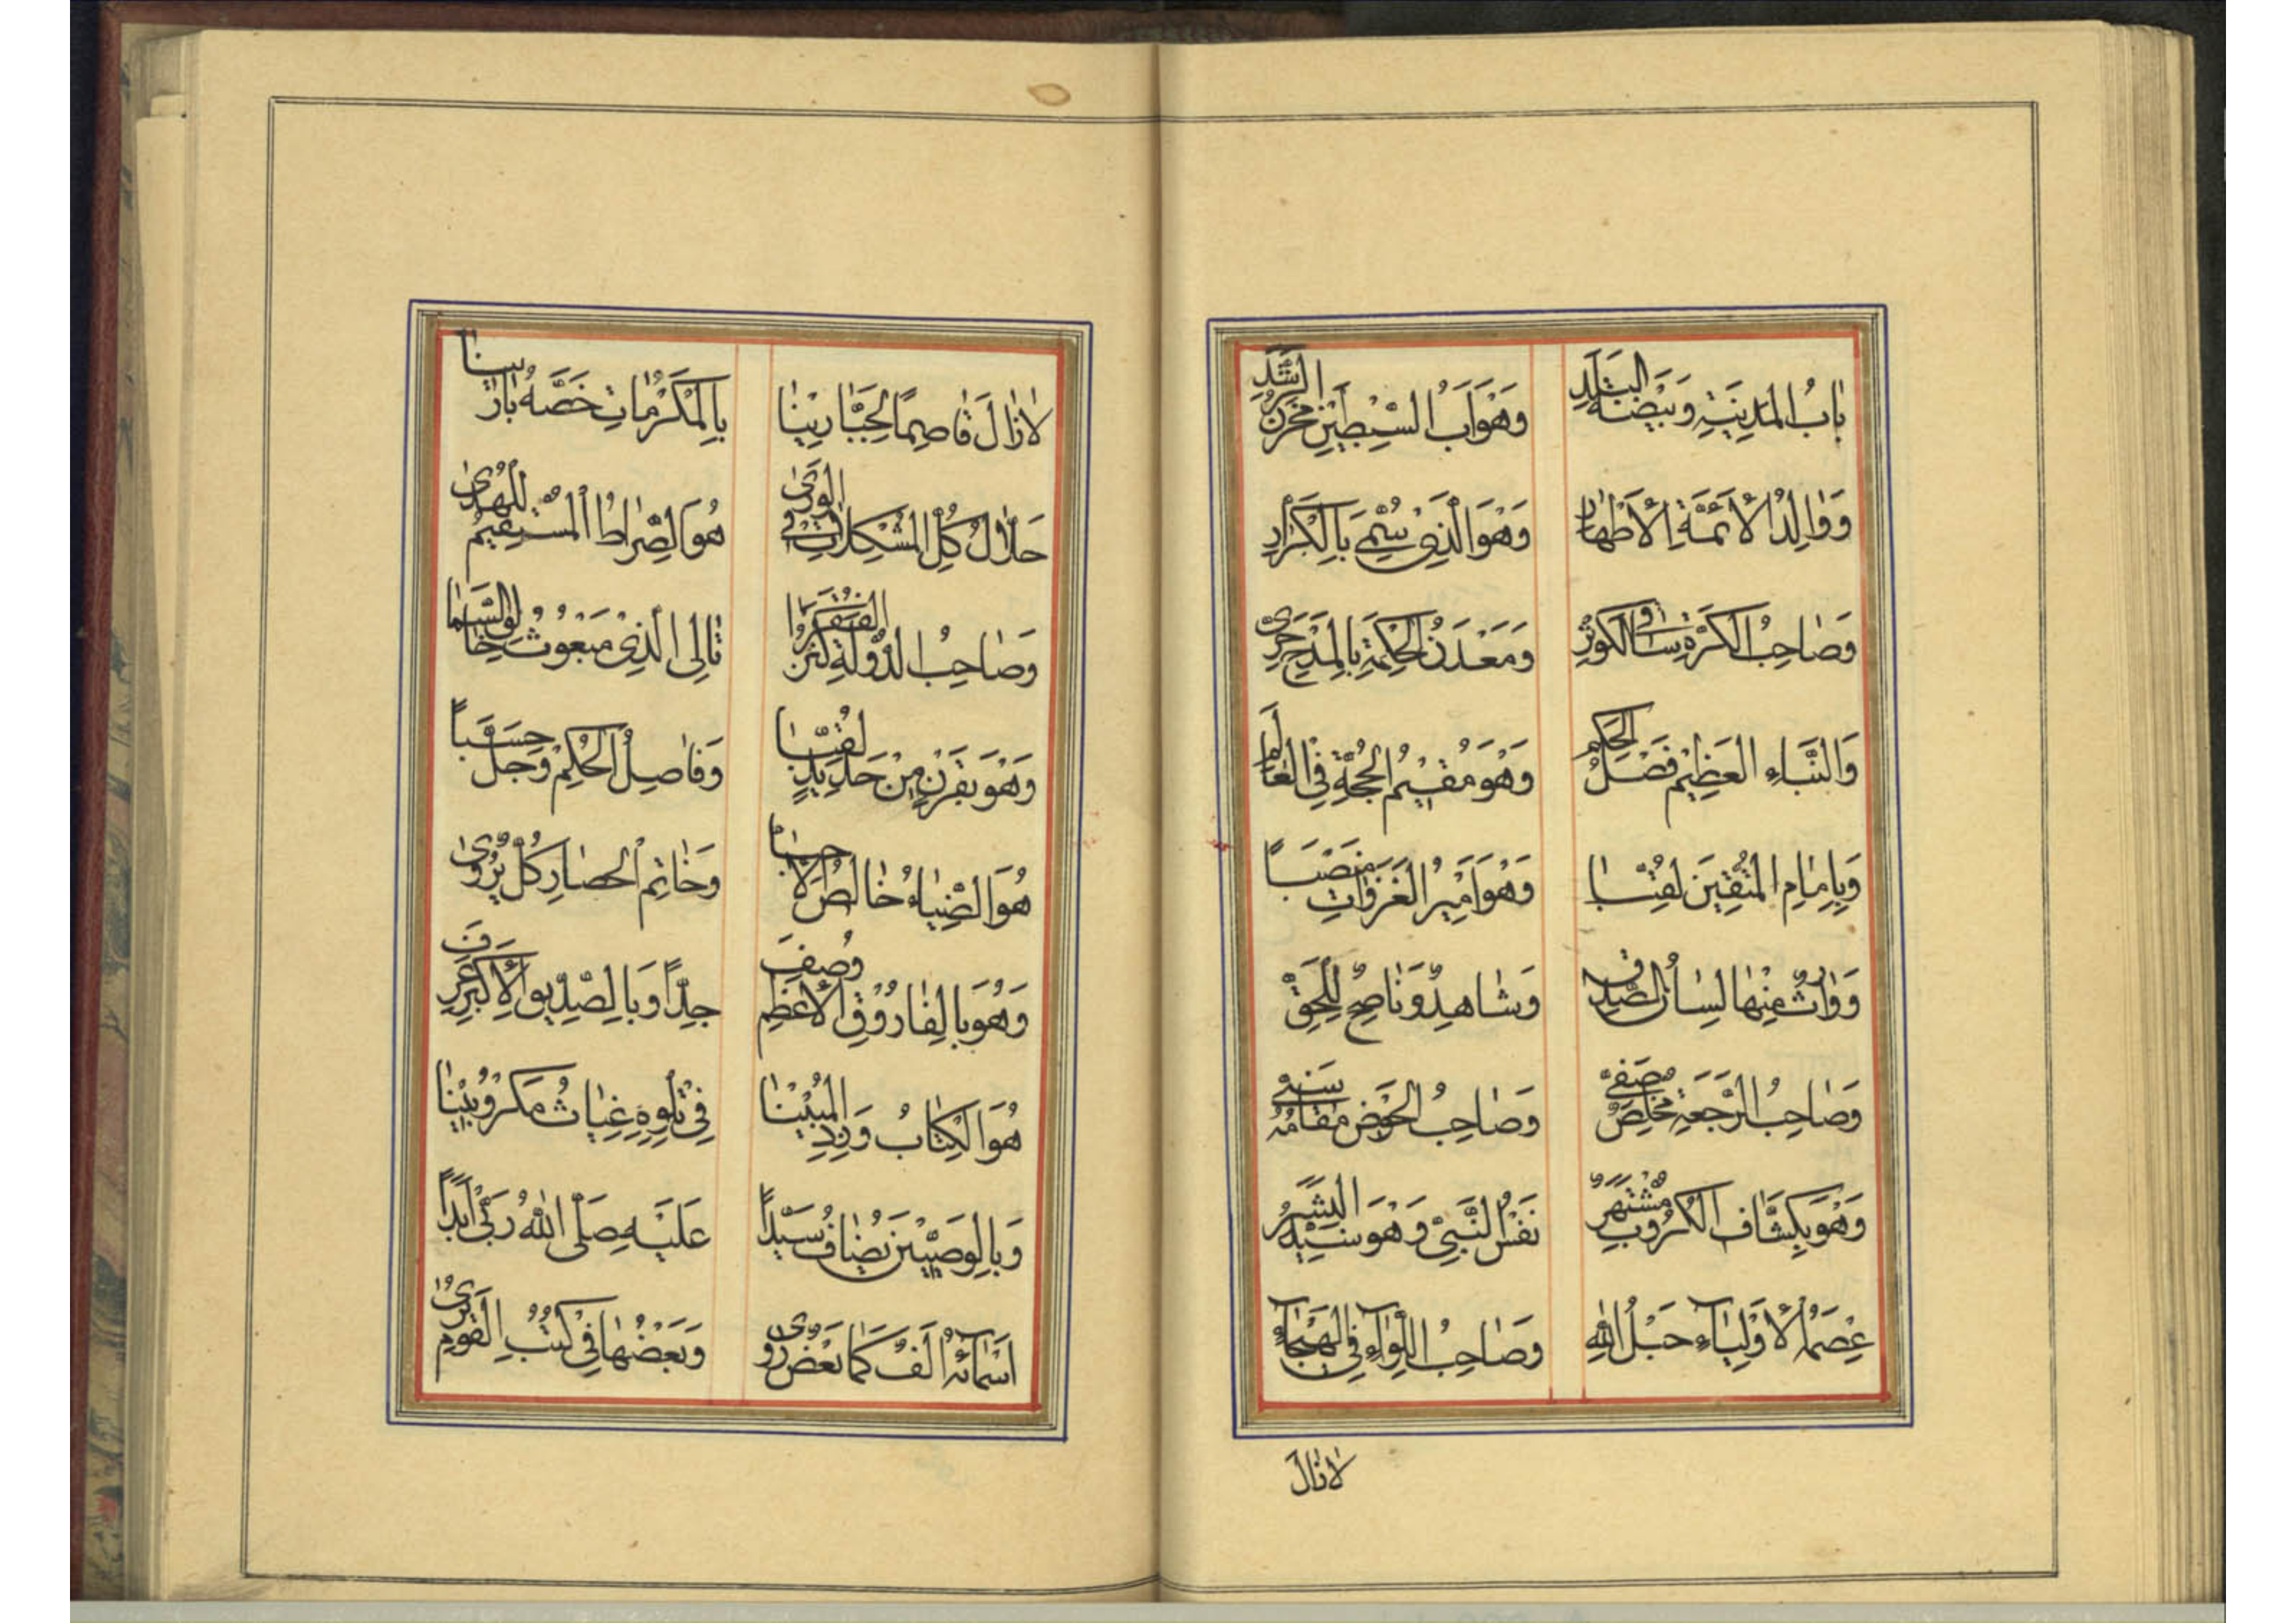 بَابُ الْمَدِينَةِ وَبَيْضَةُ الْبَلَدِ وَهُوَ أَبُ السِّبْطَيْنِ مَخْزَنُ الرَّشَدِ
وَوَالِدُ الْأَئِمَّةِ الْأَطْهَارِ وَهُوَ الَّذِي سُمِّيَ بِالْكَرَّارِ
وَصَاحِبُ الْكَرَّةِ سَاقِي الْكَوْثَرِ وَمَعْدَنُ الْحِكْمَةِ بِالْمَدْحِ حَرِيّ
وَالنَّبَاءِ الْعَظِيْمِ فَصْلُ الْحَكَمِ وَهُوَ مُقِيْمُ الْحُجَّةِ فِي الْعَالَمِ
وَبِإِمَامِ الْمُتَّقِينَ لُقِّبَا وَهُوَ أَمِيْرُ الْغَزَوَاتِ مَنْصَبًا
وَوَارِثٌ مِنْهَا لِسَانُ الصِّدْقِ وَشَاهِدٌ وَنَاصِحٌ لِلْحَقِّ
وَصَاحِبُ الرَّجْعَةِ مُخْلِصٌ صَفِيّ وَصَاحِبُ الْحَوْضِ مَقَامُهُ سَنِيّ
وَهُوَ بِكَشَّافِ الْكُرُوبِ مُشْتَهَرٌ نَفْسُ النَّبِيِّ وَهُوَ سَيِّدُ الْبَشَرِ
عِصَمُ الْأَوْلِيَاءِ حَبْلُ اللهِ وَصَاحِبُ اللِّوَاءِ فِي الْهَيْجَاءِ
لَازَالَ
لَازَالَ قَاصِمًا لِجَبَّارِيْنَا بِالْمَكْرُمَاتِ خَصَّهُ بَارِيْنَا
حَلَّالُ كُلِّ الْمُشْكِلَاتِ فِي الْوَرَىٰ هُوَ الصِّرَاطُ الْمُسْتَقِيْمُ لِلْهُدَىٰ
وَصَاحِبُ الدَّوْلَةِ كَنْزُ الْفُقَرَا تَالِي الَّذِيْ مَبْعُوثُ خَالِقِ السَّمَا
وَهُوَ بِقَرْنٍ مِنْ حَدِيدٍ لُقِّبَا وَفَاصِلُ الْحُكْمِ وَجَلَّ حَسَبًا
هُوَ الضِّيَاءُ خَالِصُ وَخَاتِمُ الْحِصَارِ كُلٌّ يُرْوَىٰ
وَهُوَ بِالْفَارُوْقِ الْأَعْظَمِ وُصِفَ جِدًّا وَبِالصِّدِّيْقِ الْأَكْبَرِ عُرِفَ
هُوَ الْكِتَابُ وَزِدِ الْمُبِيْنَا فِي تِلْوِهِ غِيَاثُ مَكْرُوبِيْنَا
وَبِالْوَصِيِّيْنَ يُضَافُ سَيِّدًا عَلَيْهِ صَلَّى اللهُ رَبِّي أَبَدًا
أَسْمَائُهُ أَلْفٌ كَمَا بَعْضٌ رَوَىٰ وَبَعْضُهَا فِي كُتُبِ الْقَوْمِ تُرَىٰ